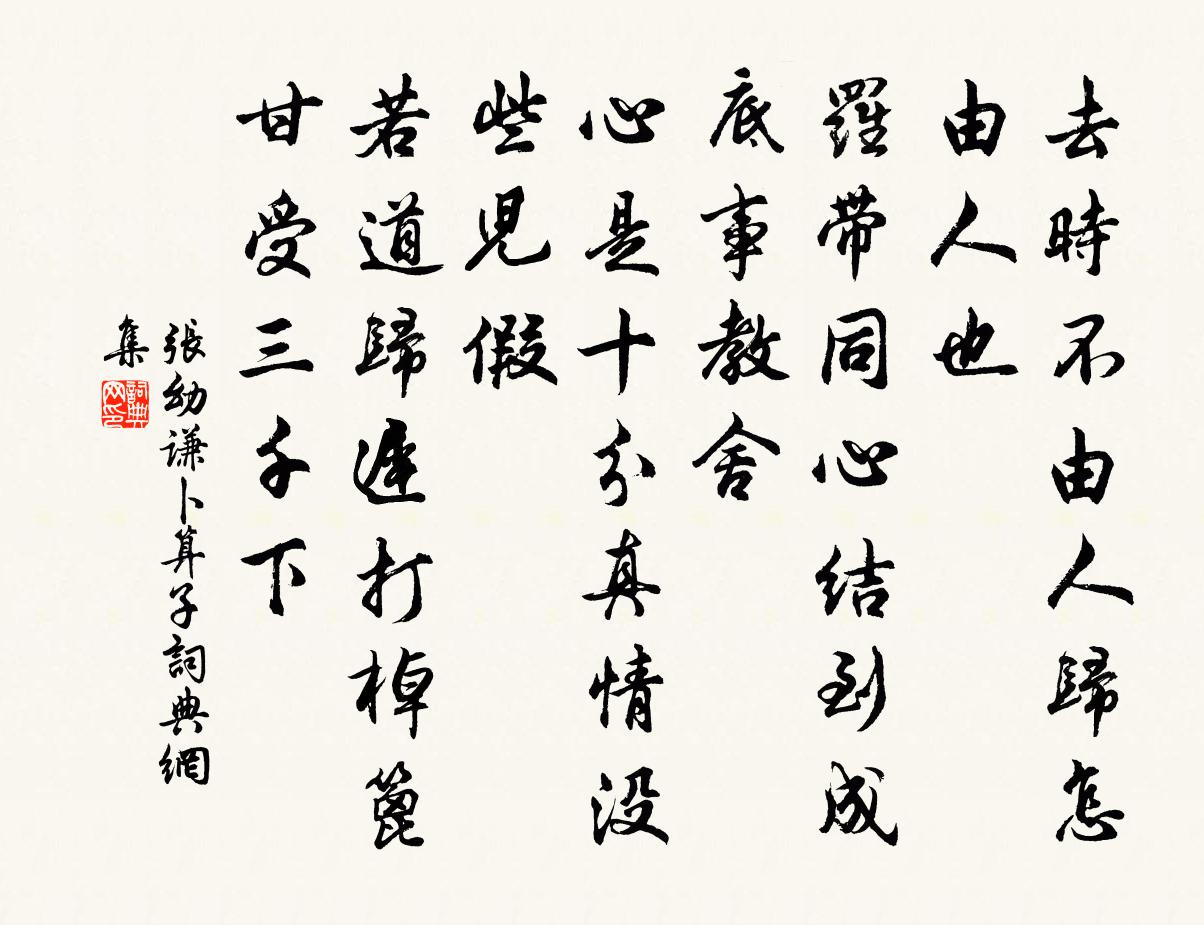 去時不由人歸怎
由人也
羅带同心结到成
底事教舍
心是十分真情没
些児假
若道歸遲打棹篦
甘受三千下
張幼谦卜算子詞典網
集
詞典
网印